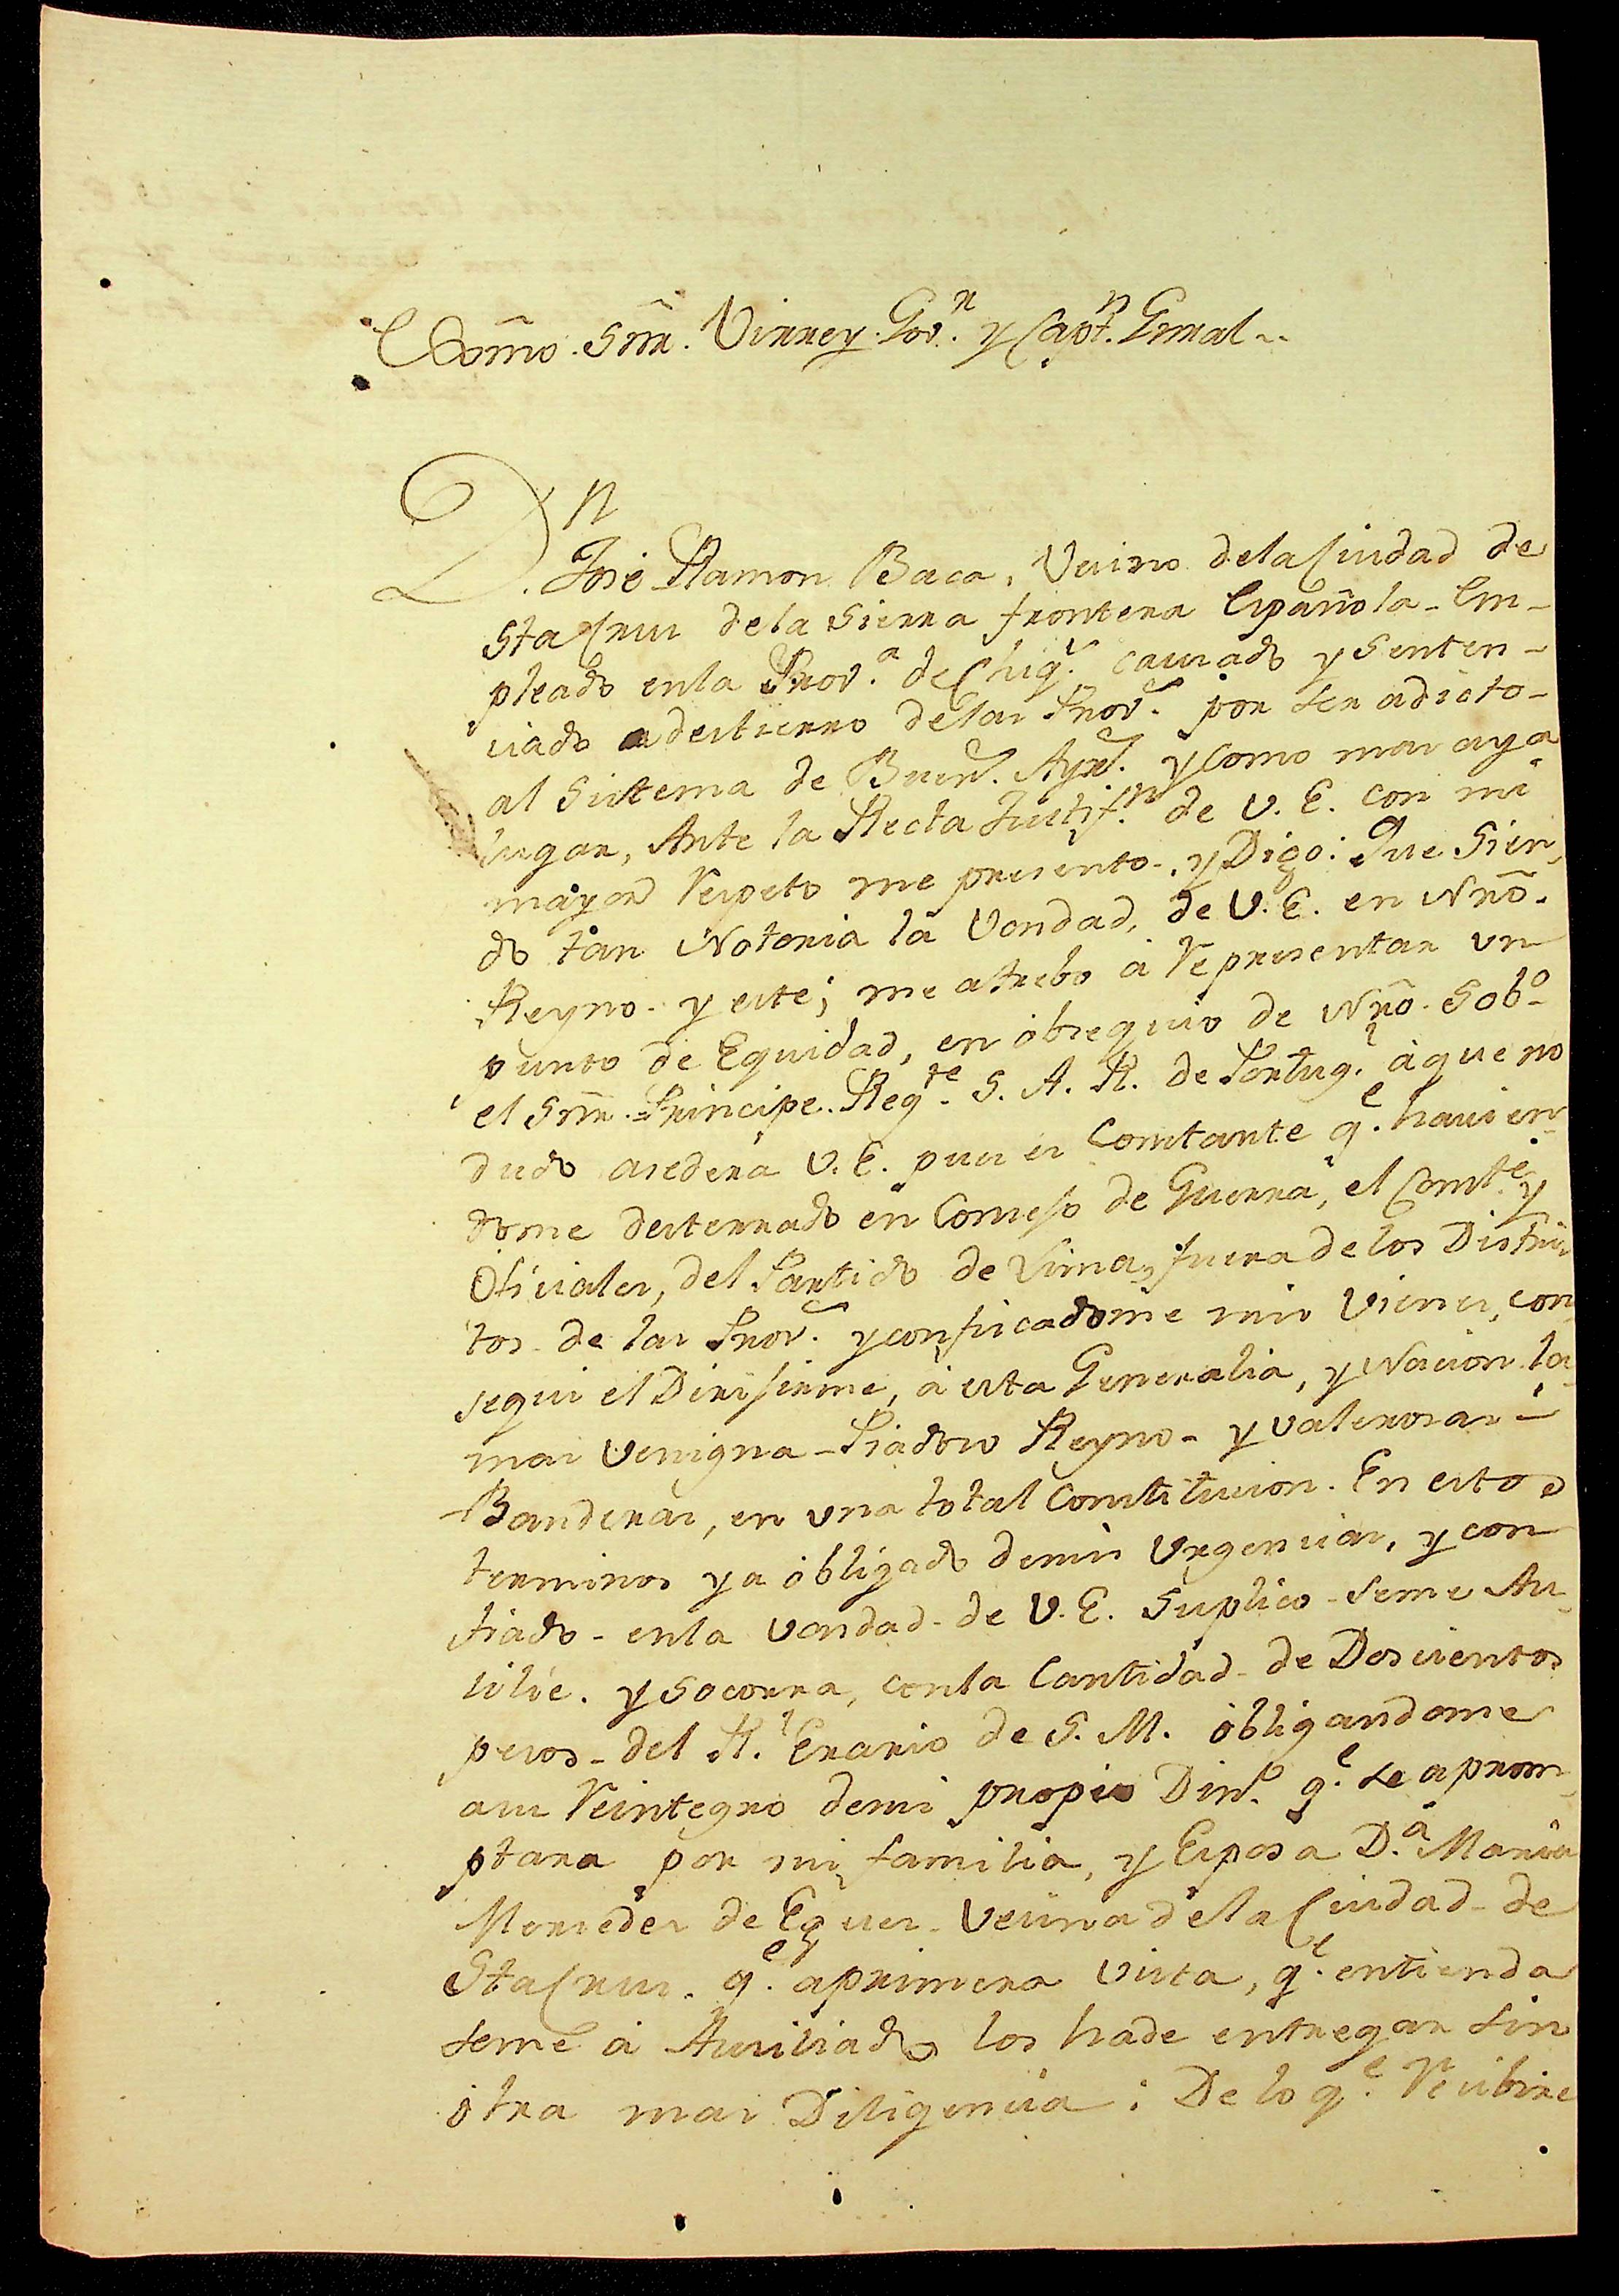 Exômo. Sõr. Virrey. Gov.n y Capt.n Grnal..
D.n José Ramon Baca, Vecino dela Ciudad de
Sta Crus dela Sierra frontera Española - Em-
pleado enla Prov.a de Chiq.s causado y Senten-
ciado a destierro delas Prov.s por ser adicto-
al Sistema de Buen.s Ayr.s y como mas aya
lugar, Ante la Recta Justif.n de V. E. con mi
mayor Respeto me presento, y Digo: Que Sien-
do tan Notoria la Vondad, de V. E. en Nrõ.
Reyno. y este; me atrebo á Representar un
punto de Equidad, en obsequio de Nrõ. Sob.o
el Sõr. Principe. Reg.te S. A. R. de Portug.l áque no
dudo asedera V. E. pues es Constante q.e havien-
dome desterrado en Consejo de Guerra, el Com.te y
Oficiales, del Partido de Lima, fuera de los Distri-
tos de las Prov.s y conficadome mis Vienes, con-
segui el Dirisirme, á esta Generalia, y Nacion la
mas Venigna - Piadoso Reyno - y valerosas -
Banderas, en una total Constitucion. En estos
terminos ya óbligado demis Urgencias, y con
fiado - enla Vondad - de V. E. Suplico - seme Au-
cilie. y Socorra, conla Cantidad - de Doscientos
pesos - del R.l Erario de S. M. óbligandome
asu Reintegro demi propio Din.o q.e se aprom-
ptara por mi familia, y Esposa D.a Maria
Mercedes de Egues - Vecina dela Ciudad - de
Sta Crus. q.e aprimera Vista, q.e entienda
seme á Auciliado los hade entregar sin
ótra mas Diligencia: De lo q.e Recibire